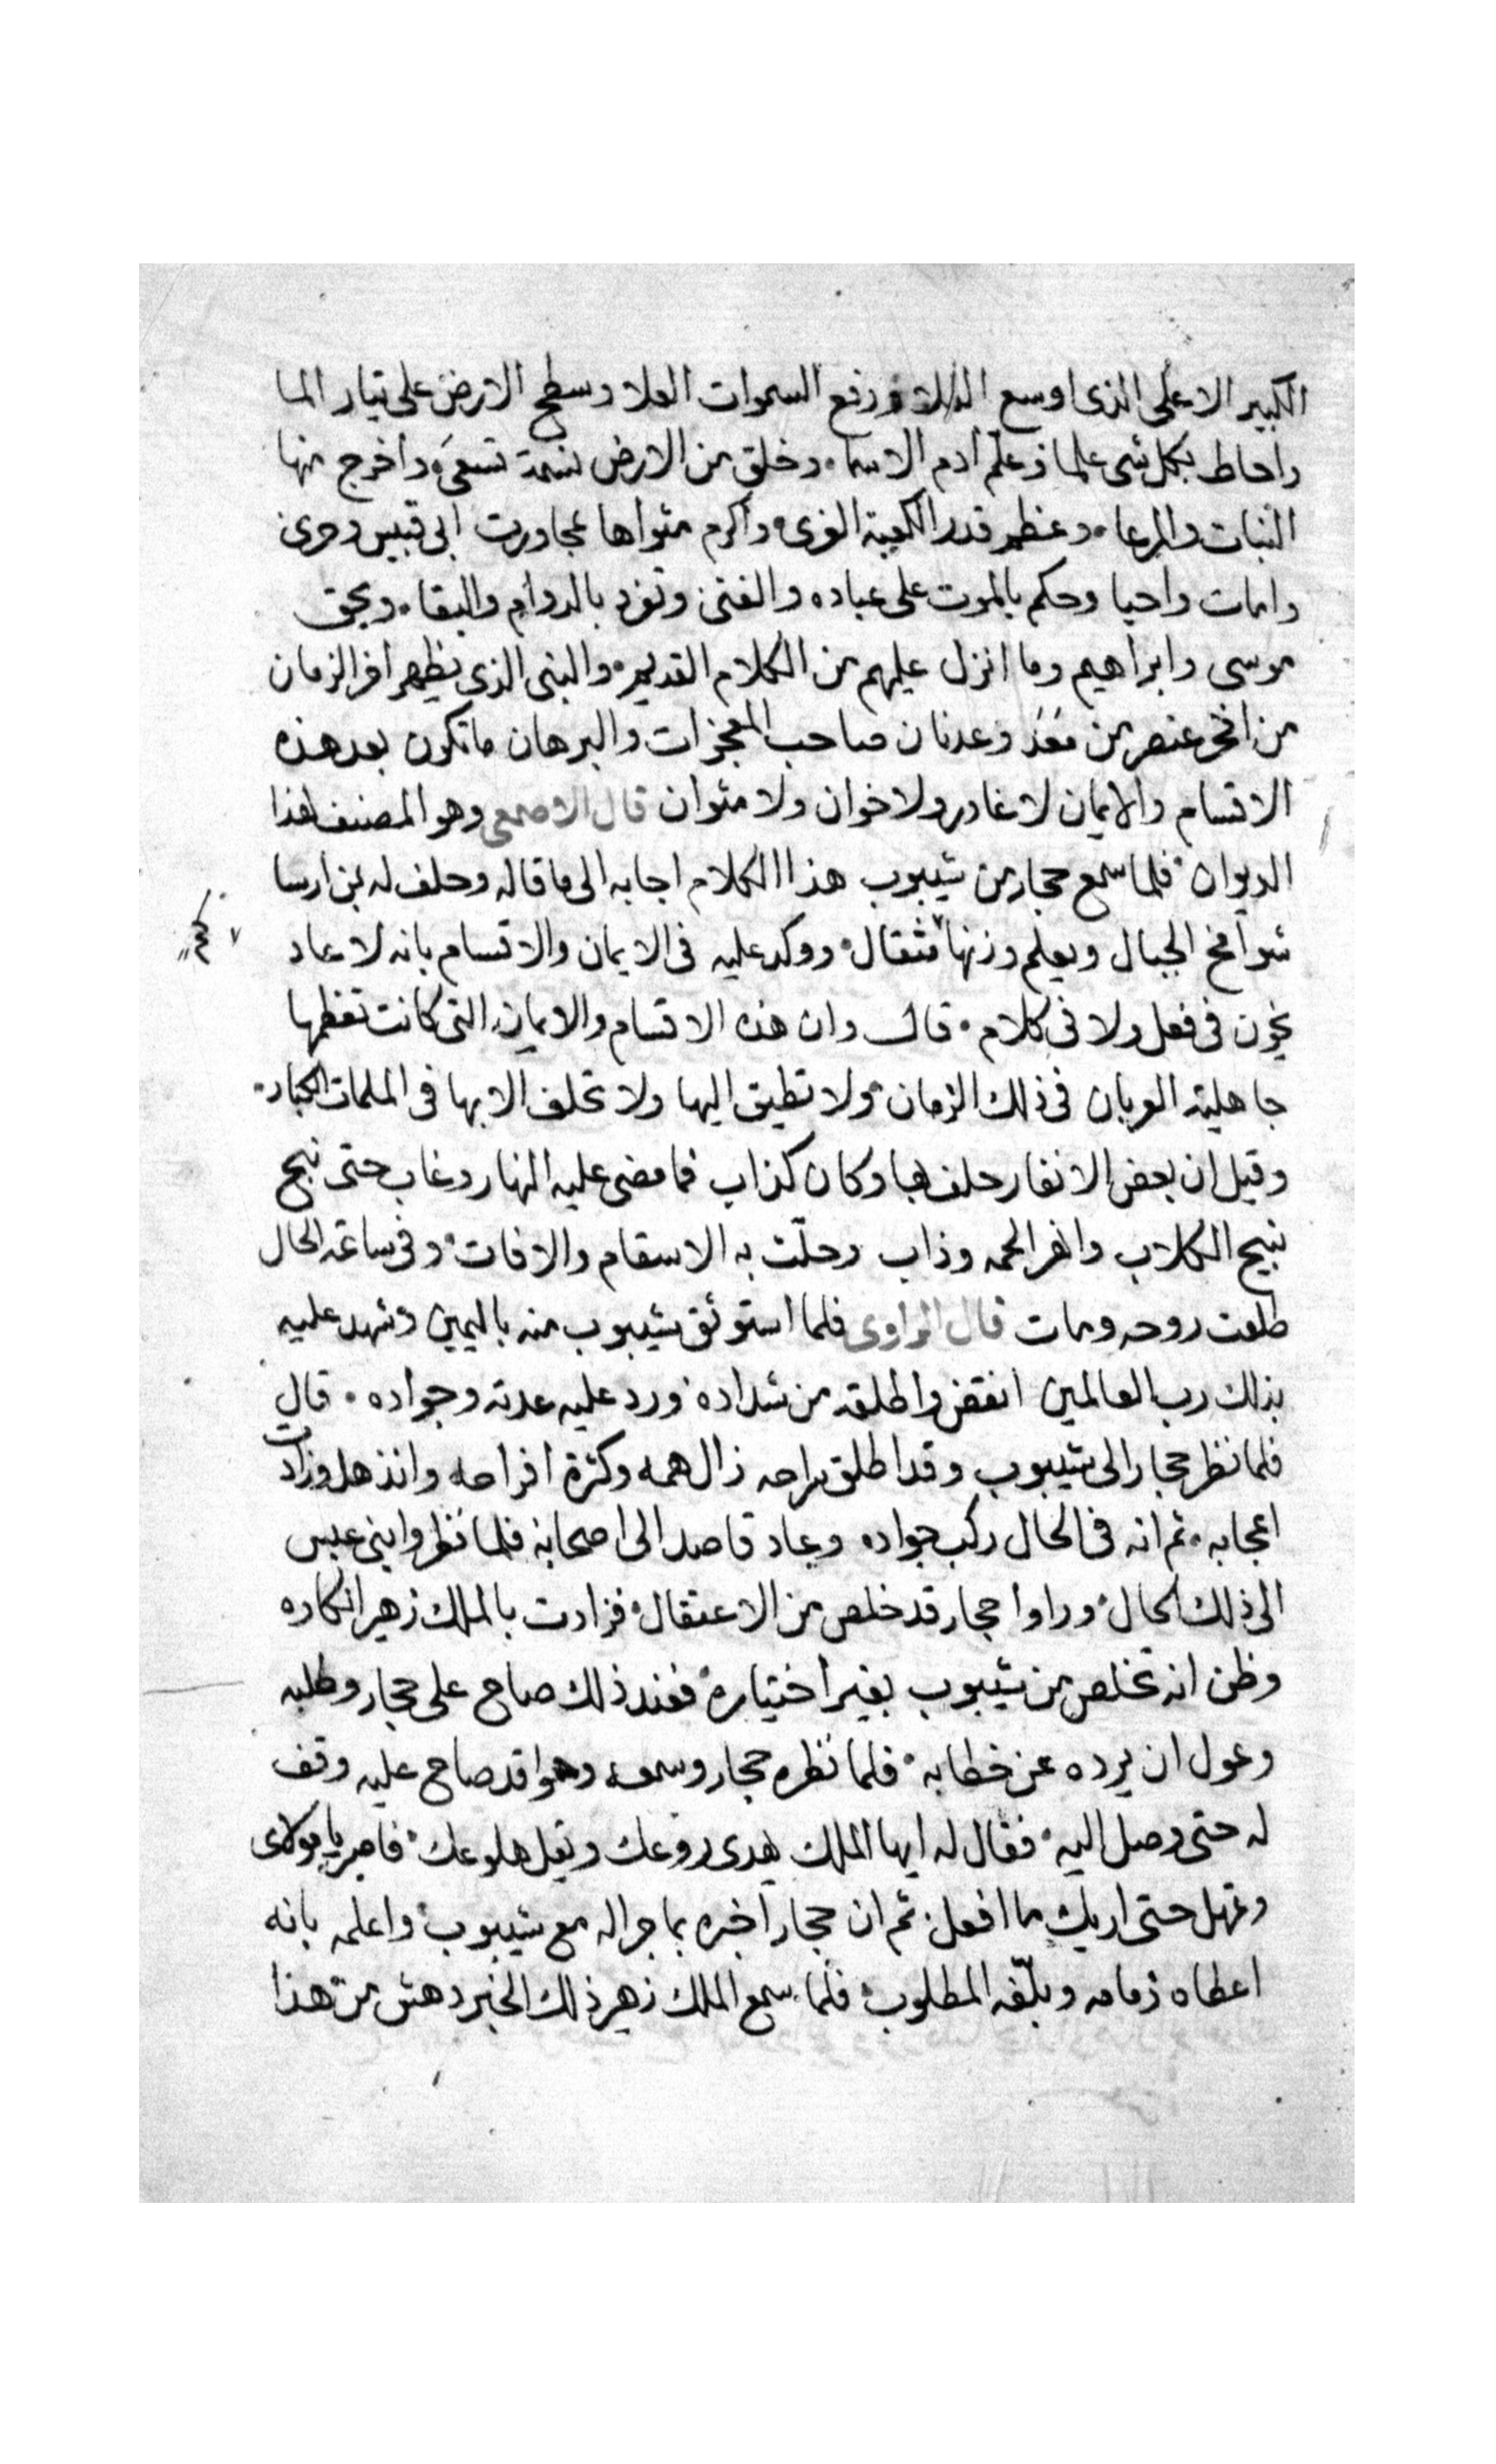 الكبير الاعلى الذى اوسع الفلا ورفع السموات العلا وسطح الارض على تيار الما
واحاط بكل شى علما وعلم آدم الاسما . وخلق من الارض نسمة تسعى واخرج منها
النبات والمرعا . وعظم قدر الكعبة الغرى . واكرم مثواها بمجاورت ابى قبيس وحرى
وامات واحيا وحكم بالموت على عباده والفنى وتفرد بالدوام والبقا . وبحق
موسى وابراهيم وما انزل عليهم من الكلام القديم . والنبى الذى يظهر اخر الزمان
من افخر عنصر من معد وعدنان صاحب المعجزات والبرهان ما تكون بعد هذه
الاقسام والايمان لا غادر ولا خوان ولا متوان قال الاصمعى وهو المصنف لهذا
الديوان . فلما سمع حجار من شيبوب هذا الكلام اجابه الى ما قاله وحلف له بمن ارسا
شوامخ الجبال ويعلم وزنها مثقال . ووكد عليه فى الايمان والاقسام بانه لا عاد
يخون فى فعل ولا فى كلام . قال وان هذه الاقسام والايمان التى كانت تعظمها
جاهلية العربان فى ذلك الزمان . ولا تطيق اليها ولا تحلف الا بها فى الملمات الكبار .
وقيل ان بعض الانفار حلف بها وكان كذاب فما مضى عليه النهار وغاب حتى نبح
نبيح الكلاب وانهرا لحمه وذاب وحلّت به الاسقام والافات . وفى ساعة الحال
طلعت روحه ومات قال الراوى فلما استوثق شيبوب منه باليمين وشهد عليه
بذلك رب العالمين انقض واطلقه من شداده ورد عليه عدته وجواده . قال
فلما نظر حجار الى شيبوب وقد اطلق سراحه زال همه وكثرة افراحه وانذهل وزادت
اعجابه . ثم انه فى الحال ركب جواده وعاد قاصد الى اصحابه فلما نظروا بنى عبس
الى ذلك الحال . وراوا حجار قد خلص من الاعتقال . فزادت بالملك زهير انكاده
وظن انه تخلص من شيبوب بغير اختياره . فعند ذلك صاح على حجار وطلبه
وعول ان يرده عن خطابه . فلما نظره حجار وسمعه وهوا قد صاح عليه وقف
له حتى وصل اليه . فقال له ايها الملك يهدى روعك ويقل هلوعك . فاصبر يا مولاى
وتمهل حتى اريك ما افعل . ثم ان حجار اخبره بما جرا له مع شيبوب . واعلمه بانه
اعطاه زمامه وبلّغه المطلوب . فلما سمع الملك زهير ذلك الخبر دهش من هذا